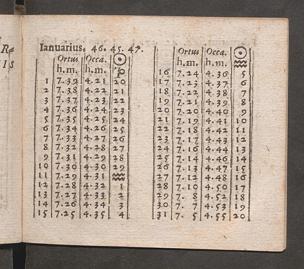 Ianuarius, 46. 45. 47.
Ortus Occa. ☉
h. m. h. m. ♑
1 7.39 4.21 20
2 7.38 4.22 21
3 7.37 4.23 22
4 7.36 4.24 23
5 7.35 4.25 24
6 7.34 4.26 25
7 7.33 4.27 26
8 7.32 4.28 27
9 7.31 4.29 28
10 7.30 4.30 29
11 7.29 4.31 ♒
12 7.28 4.32 1
13 7.27 4.33 2
14 7.26 4.34 3
15 7.25 4.35 4
Ortus Occa. ☉
h. m. h. m. ♒
16 7.24 4.36 5
17 7. 4. 6
18 7. 4. 7
19 7. 4. 8
20 7.20 4.40 9
21 7.19 4.41 10
22 7.18 4.42 11
23 7. 4. 12
24 7.16 4.44 13
25 7.14 4.46 14
26 7.13 4.47 15
27 7.12 4.48 16
28 7.10 4.50 17
29 7. 8 4.52 18
30 7. 7 4.53 19
31 7. 5 4.55 20